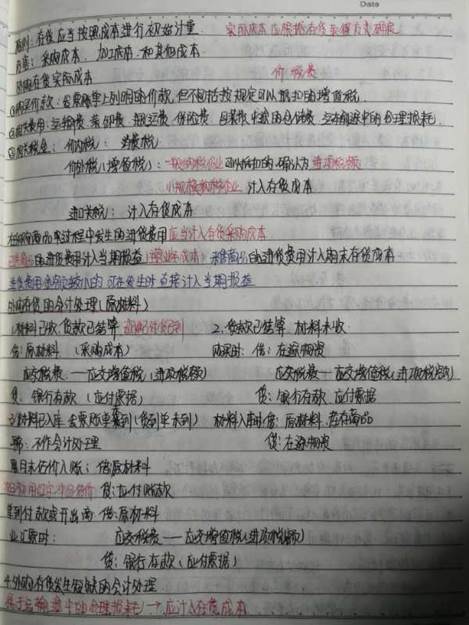 Date
原则：存货应当按照成本进行初始计量 实际成本应根据存货取得方式确定
内容：采购成本、加工成本和其他成本
外购存货实际成本 价 税 费
①购买价款：发票账单上列明的价款，但不包括按规定可以抵扣的增值税
②相关费用：运输费 装卸费 保险费 运输途中的合理损耗
③相关税金：价内税：消费税
价外税（增值税）：一般纳税企业 可以抵扣的，确认为进项税额
小规模纳税企业 计入存货成本
进口关税：计入存货成本
在采购商品过程中发生的进货费用应当计入存货采购成本
已售商品的进货费用计入当期损益（主营业务成本）未售商品的进货费用计入期末存货成本
进货费用金额较小的 可在发生时直接计入当期损益
外购存货的会计处理（原材料）
1.材料已收，货款已结算 2.货款已结算，材料未收
借：原材料 （采购成本） 购买时：借：在途物资
应交税费——应交增值税（进项税额） 应交税费——应交增值税（进项税额）
贷：银行存款（应付票据） 贷：银行存款 应付票据
3.材料已入库，发票账单未到（货到单未到） 材料入库时 借：原材料 库存商品
：不作会计处理 贷：在途物资
月末估价入账：借：原材料
贷：应付账款
付款或开出商 借：原材料
业汇票时： 应交税费——应交增值税（进项税额）
贷：银行存款（应付票据）
4.外购存货发生短缺的会计处理
属于运输途中的合理损耗 → 应计入存货成本